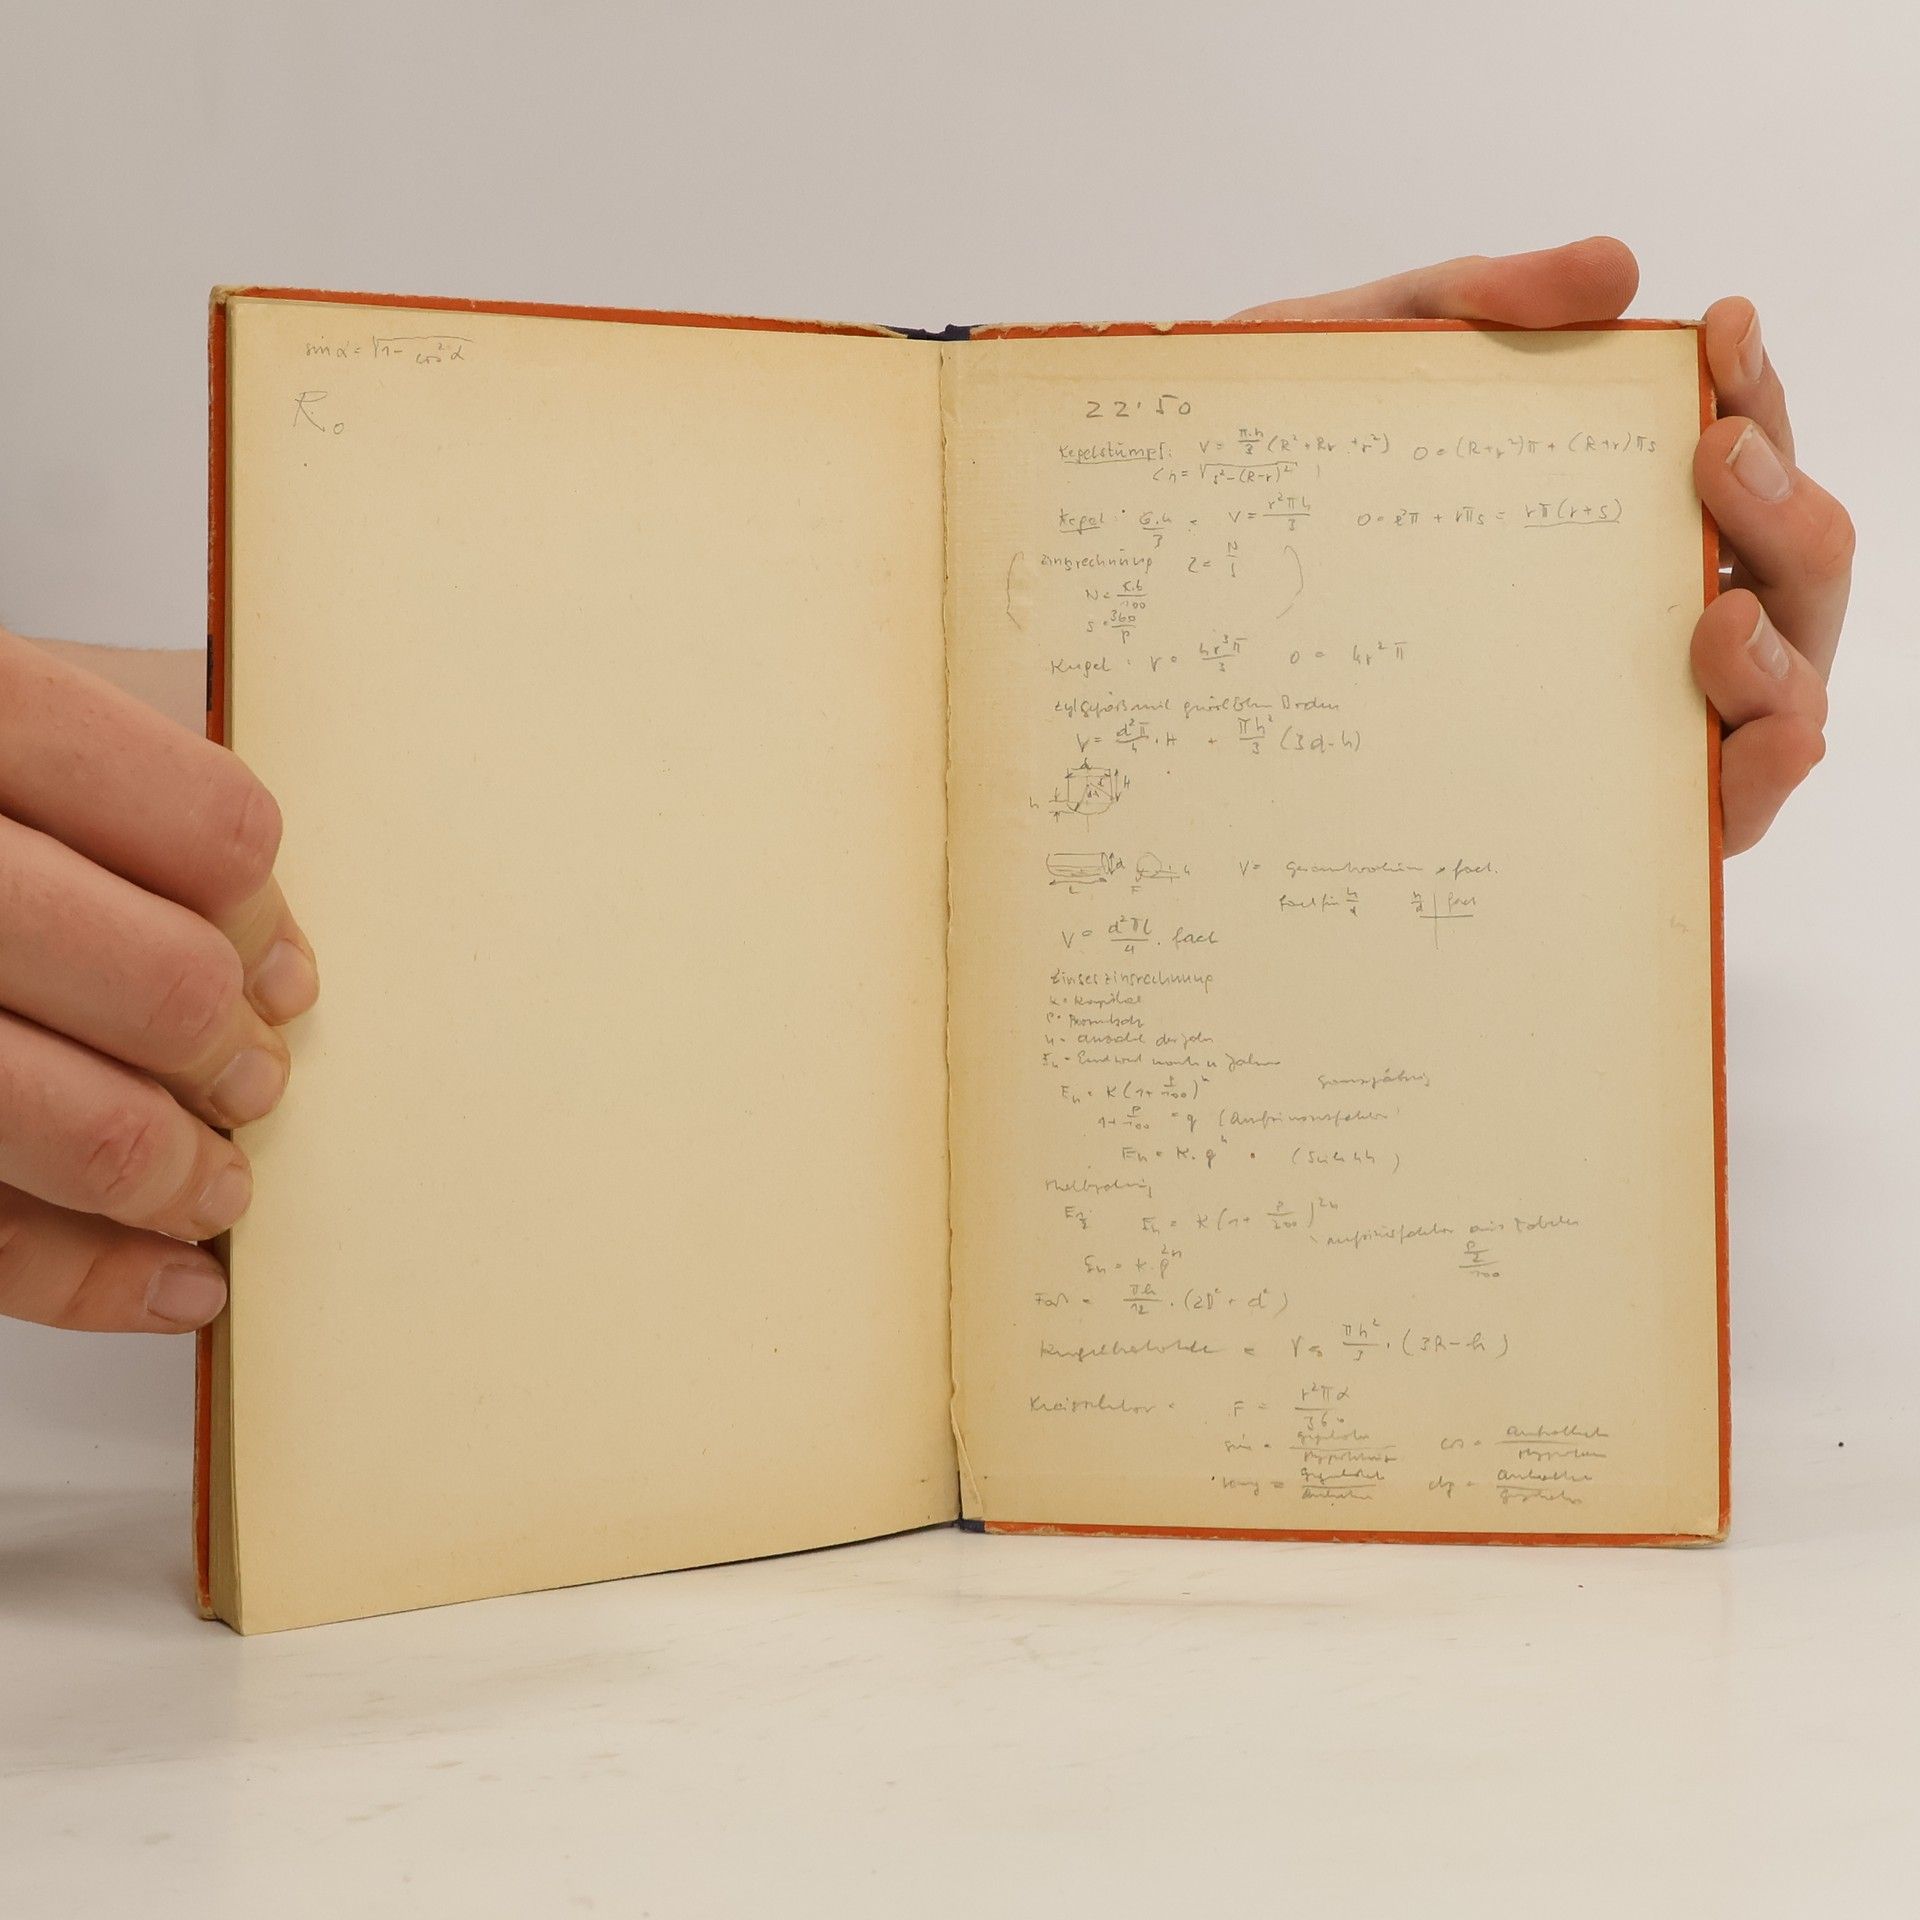 sin α = √1 - cos² α
R₀
22'50
Kegelstumpf: V = π.h/3 (R² + Rr + r²) O = (R + r²)π + (R + r)πs
h = √s² - (R - r)²
Kegel: G.h/3 = V = r²πh/3 O = r²π + rπs = rπ(r + s)
Zinsrechnung Z = N/S
N = K.t/100
S = 360/p
Kugel: V = 4r³π/3 O = 4r²π
V = d²π/4 . H + πh²/3 (3d - h)
d
d H
d-h
h
d h V = Gesamtvolumen × fact.
L F
fact für h/d h/d | fact
V = d²πl/4 . fact
Zinseszinsrechnung
K = Kapital
p =
n = Anzahl der Jahre
Eₙ = Endwert nach n Jahren
Eₙ = K(1 + p/100)ⁿ ganzjährig
1 + p/100 = q (Aufzinsungsfaktor
Eₙ = K . qⁿ
Halbjährig
Eₙ = K(1 + p/200)²ⁿ
Aufzinsfaktor aus Tabelle
p/2/100
Eₙ = K . q²ⁿ
Faß = πh/12 . (2D² + d²)
V = πh²/3 . (3R - h)
Kreissektor = F = r²πα/360
sin = Gegenkath/Hypothenuse cos = Ankathete/Hypothen
tang = Gegenkath/Ankathe ctg = Ankathe/Gegenkathe